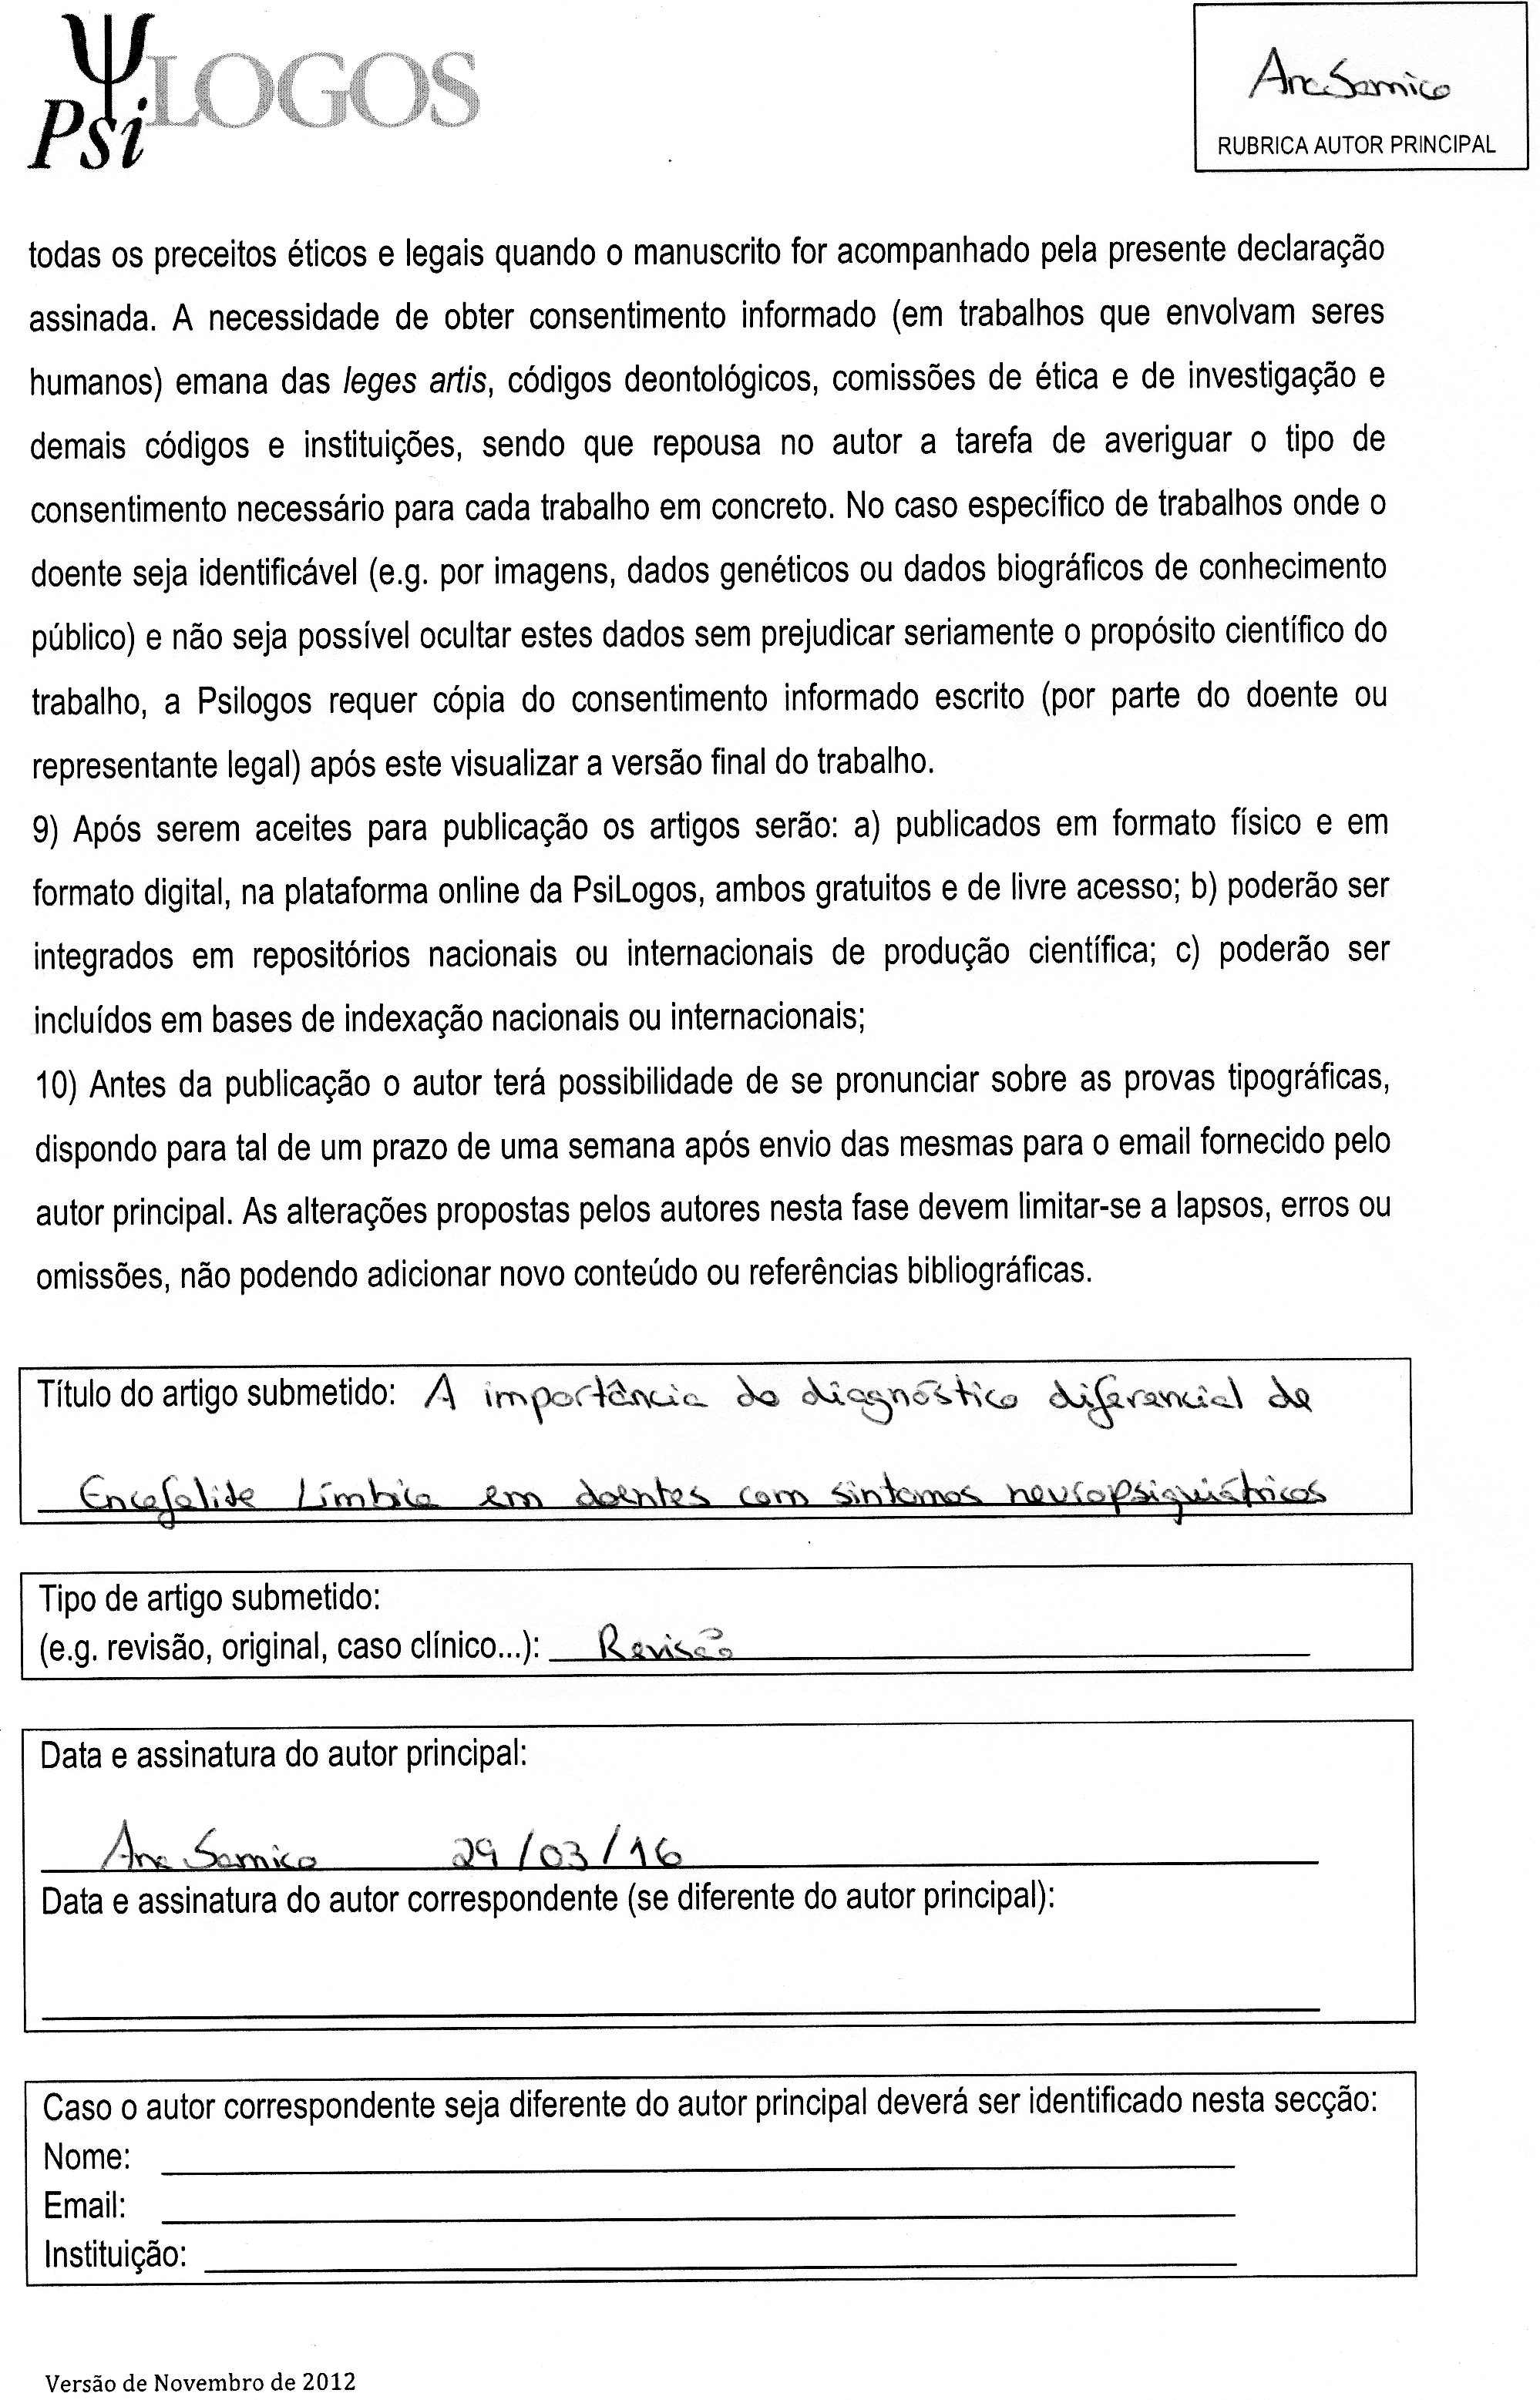 Psi LOGOS
Ana Samico
RUBRICA AUTOR PRINCIPAL
todas os preceitos éticos e legais quando o manuscrito for acompanhado pela presente declaração
assinada. A necessidade de obter consentimento informado (em trabalhos que envolvam seres
humanos) emana das leges artis, códigos deontológicos, comissões de ética e de investigação e
demais códigos e instituições, sendo que repousa no autor a tarefa de averiguar o tipo de
consentimento necessário para cada trabalho em concreto. No caso específico de trabalhos onde o
doente seja identificável (e.g. por imagens, dados genéticos ou dados biográficos de conhecimento
público) e não seja possível ocultar estes dados sem prejudicar seriamente o propósito científico do
trabalho, a Psilogos requer cópia do consentimento informado escrito (por parte do doente ou
representante legal) após este visualizar a versão final do trabalho.
9) Após serem aceites para publicação os artigos serão: a) publicados em formato físico e em
formato digital, na plataforma online da PsiLogos, ambos gratuitos e de livre acesso; b) poderão ser
integrados em repositórios nacionais ou internacionais de produção científica; c) poderão ser
incluídos em bases de indexação nacionais ou internacionais;
10) Antes da publicação o autor terá possibilidade de se pronunciar sobre as provas tipográficas,
dispondo para tal de um prazo de uma semana após envio das mesmas para o email fornecido pelo
autor principal. As alterações propostas pelos autores nesta fase devem limitar-se a lapsos, erros ou
omissões, não podendo adicionar novo conteúdo ou referências bibliográficas.
Título do artigo submetido: A importância do diagnóstico diferencial de
Encefalite Límbica em doentes com sintomas neuropsiquiátricos
Tipo de artigo submetido:
(e.g. revisão, original, caso clínico...): Revisão
Data e assinatura do autor principal:
Ana Samico 29/03/16
Data e assinatura do autor correspondente (se diferente do autor principal):
Caso o autor correspondente seja diferente do autor principal deverá ser identificado nesta secção:
Nome:
Email:
Instituição:
Versão de Novembro de 2012